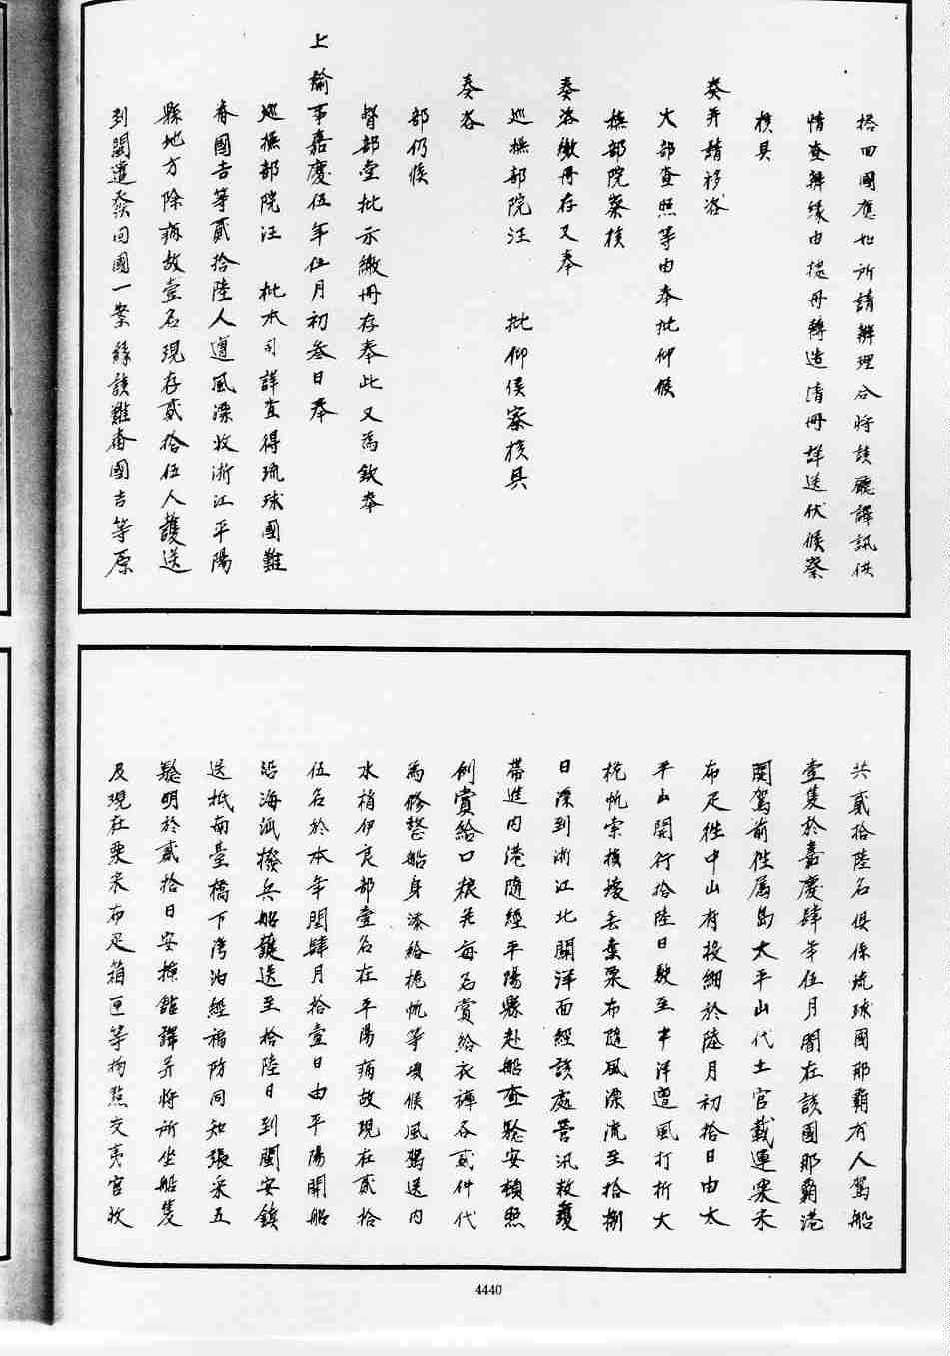 搭回國應如所請辦理合將該廳譯訊供
情查辦緣由攄册轉造清册詳送伏候察
核具
奏并請移咨
大部查照等由奉批仰候
撫部院察核
奏咨繳册存又奉
巡撫部院汪 批仰候察核具
奏咨
部仍候
督部堂批示繳册存奉此又為欽奉
上諭事嘉慶伍年伍月初叁日奉
巡撫部院汪 批本司詳查得琉球國難
番國吉等貳拾陸人遭風漂收浙江平陽
縣地方除病故壹名現存貳拾伍人護送
到閩遣發回國一案緣該難番國吉等原
共貳拾陸名俱係琉球國那霸有人駕船
壹隻於嘉慶肆年伍月間在該國那霸港
開駕前往屬島太平山代土官載運粟米
布疋往中山府投納於陸月初拾日由太
平山開行拾陸日駛至半洋遭風打折大
桅帆索槓椗丟棄粟布隨風漂流至拾捌
日漂到浙江北關洋面經該處營汛救護
帶進内港隨經平陽縣赴船查驗安頓照
例賞給口糧并每名賞給衣褲各貳件代
為修整船身添給桅帆等項候風駕送内
水梢伊良部壹名在平陽病故現在貳拾
伍名於本年閏肆月拾壹日由平陽開船
沿海派撥兵船護送至拾陸日到閩安鎮
送抵南臺橋下灣泊經福防同知張采五
驗明於貳拾日安插館驛并將所坐船隻
及現在粟米布疋箱匣等物點交夷官收
4440